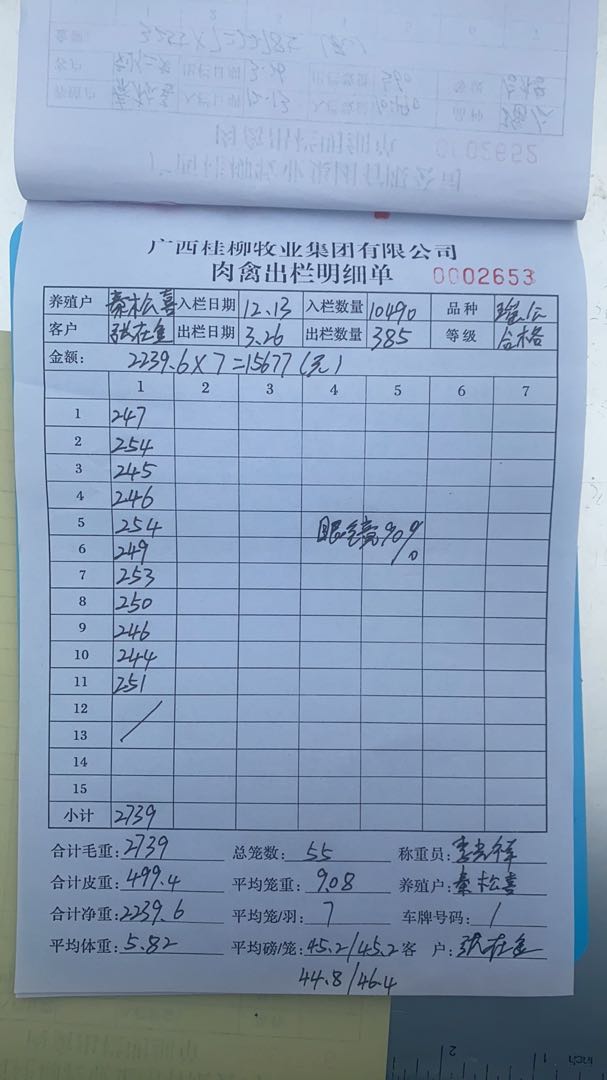 0002652
广西桂柳牧业集团有限公司
肉禽出栏明细单 0002653
养殖户 秦松喜 入栏日期 12.13 入栏数量 10490 品种
客户 出栏日期 3.26 出栏数量 385 等级 合格
金额: 2239.6×7=15677(元)
1 2 3 4 5 6 7
1 247
2 254
3 245
4 246
5 254 眼全亮90%
6 249
7 253
8 250
9 246
10 244
11 251
12
13
14
15
小计 2739
合计毛重: 2739 总笼数: 55 称重员:
合计皮重: 499.4 平均笼重: 9.08 养殖户: 秦松喜
合计净重: 2239.6 平均笼/羽: 7 车牌号码: /
平均体重: 5.82 平均磅/笼: 45.2/45.2 客 户:
44.8/46.4